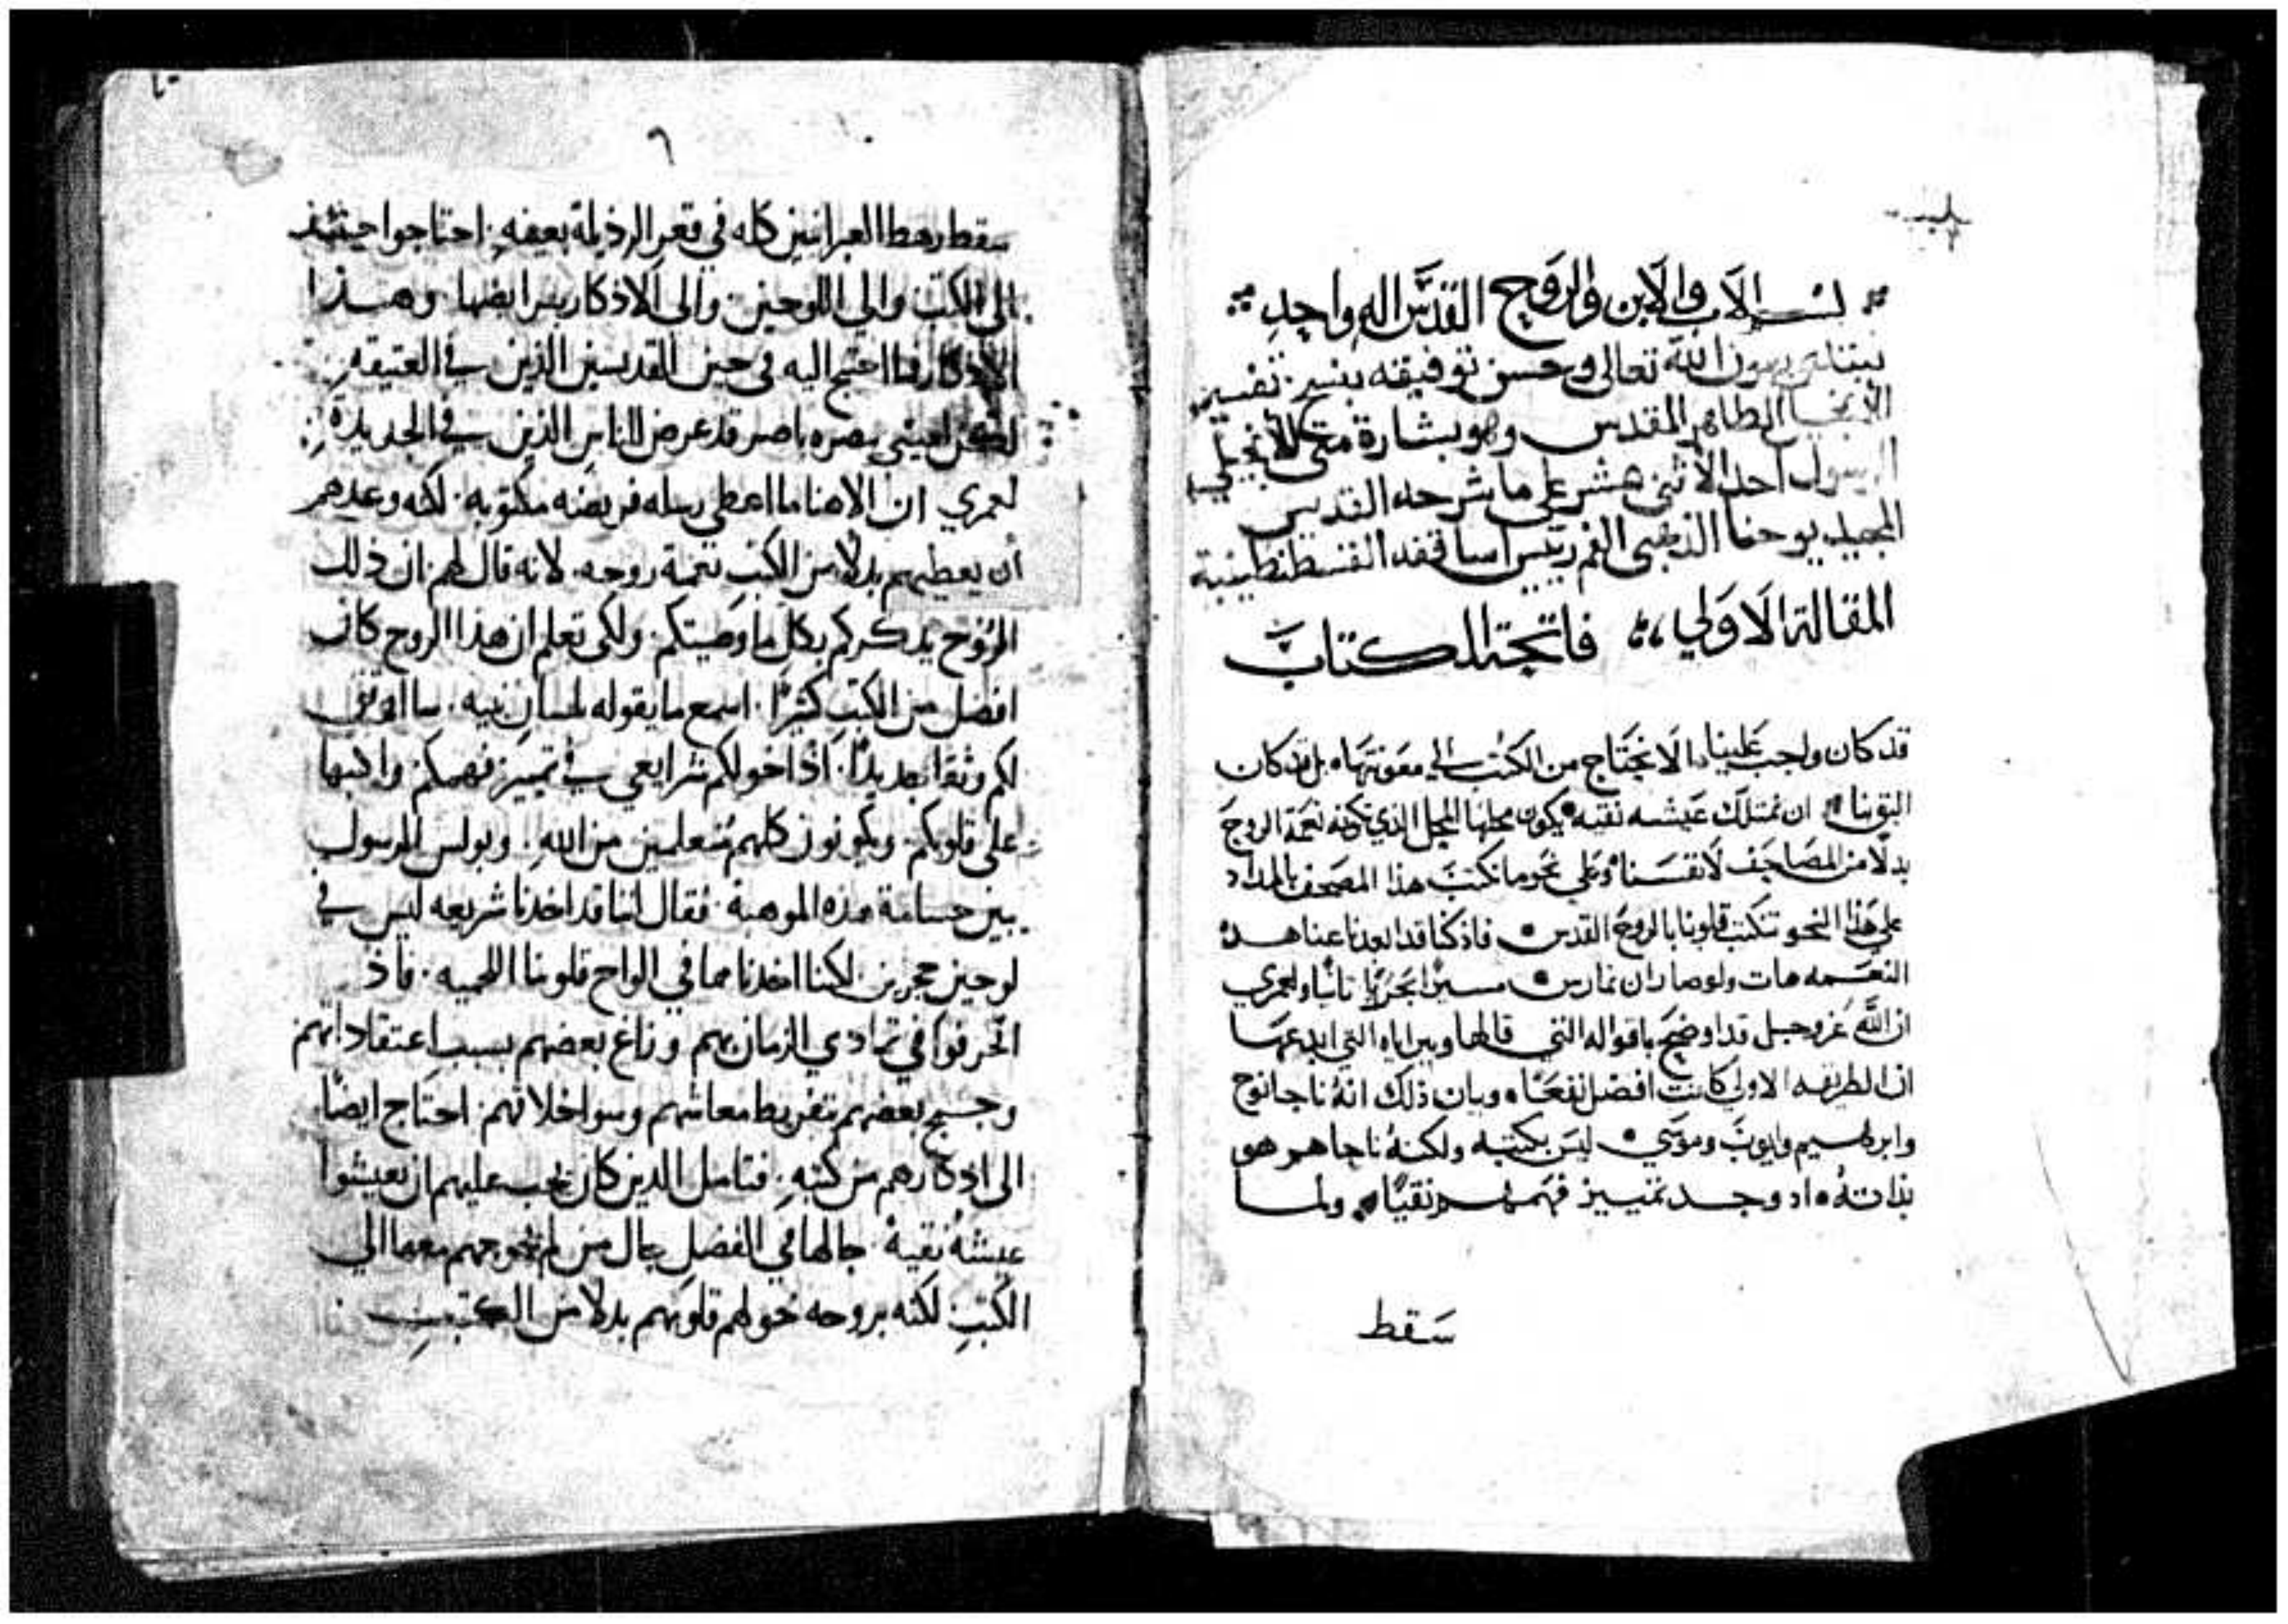 بسم الاب والابن والروح القدس اله واحد
نبتدي بعون الله تعالى وحسن توفيقه بنسخ تفسير
الانجيل الطاهر المقدس وهو بشارة متى الانجيلي
الرسول احد الاثنى عشر على ما شرحه القديس
المجيد يوحنا الذهبى الفم رييس اساقفه القسطنطينية
المقالة الاولي فاتحة الكتاب
قد كان واجب علينا الا نحتاج من الكتب الي معونتها بل قد كان
اليق بنا ان نمتلك عيشه نقيه يكون محلها المحل الذي تكونه نعمة الروح
بدلا من المصاحف لانفسنا وعلي نحو ما نكتب هذا المصحف بالمداد
علي هذا النحو تنكتب قلوبنا بالروح القدس فاذ كنا قد ابعدنا عنا هذه
النعمه هات ولو صار ان نمارس مسيرا اخريا ثانيا ولعمري
ان الله عز وجل قد اوضح باقواله التي قالها وبراياه التي ابدعها
ان الطريقه الاولي كانت افضل نفعا وبيان ذلك انه ناجا نوح
وابرهيم وايوب وموسي ليس بكتبه ولكنه ناجاهم هو
بذاته اد وجد تمييز فهمهم نقيا ولما
سقط
٦
سقط رهط العبرانيين كله في قعر الرذيلة بعيفه احتاجوا حينئذ
الى الكتب والى اللوحين والى الاذكار بسرايضها وهذا
الاذكار فما احتيج اليه فى حين القديسين الذين في العتيقه
لكن ليبني بصره باصر قد عرض للناس الذين في الجديدة
لعمري ان الاهنا ما اعطى رسله فريضه مكتوبه لكنه وعدهم
أن يعطيهم بدلا من الكتب نعمة روحه لانه قال لهم ان ذلك
الروح يذكركم بكل ما وصيتكم ولكى تعلم ان هذا الروح كان
افضل من الكتب كثيرا اسمع ما يقوله بلسان نبيه ساوثق
لكم وثقا جديدا اذا خولكم شرايعي في تمييز فهمكم واكتبها
على قلوبكم ويكونون كلهم متعلمين من الله وبولس الرسول
يبين حسامة هذه الموهبة فقال اننا قد اخذنا شريعه ليس في
لوحين حجرين لكننا اخذناها في الواح قلوبنا اللحميه فاذ
انحرفوا في تمادي الزمان بهم وزاغ بعضهم بسبب اعتقاداتهم
وجمح بعضهم بتفريط معاشهم وسوا خلاقهم احتاج ايضا
الى اذكارهم من كتبه فتامل الذين كان يجب عليهم ان يعيشوا
عيشة نقية حالها في الفضل حال من لم تحوجهم معها الي
الكتب لكنه بروحه خولهم قلوبهم بدلا من الكتب